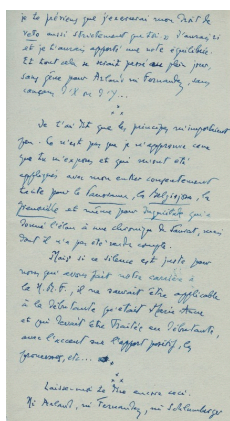 je te préviens que j'exercerai mon droit de
veto aussi strictement que toi. J'aurais ri
et je t'aurais apporté une note équilibrée.
Et tout cela se serait passé au plein jour,
sans gêne pour Arland ni Fernandez, sans
concours d'X ou d'Y...
Je t'ai dit que les principes m'importaient
peu. Ce n'est pas que je n'approuve ceux
que tu m'exposes, et qui m'ont été
appliqués avec mon entier consentement
tant pour le Panorama, la Belgiojoso, la
et même pour qui a
donné l'étau à une chronique de mais
dont il n'a pas été rendu compte.
Mais si ce silence est juste pour
nous qui avons fait notre carrière à
la N.R.F., il ne saurait être applicable
à la débutante qu'était Marie Anne
et qui devait être traitée en débutante,
avec l'accent sur l'apport positif, les
promesses, etc...
Laisse-moi te dire encore ceci.
Ni Arland, ni Fernandez, ni Schlumberger